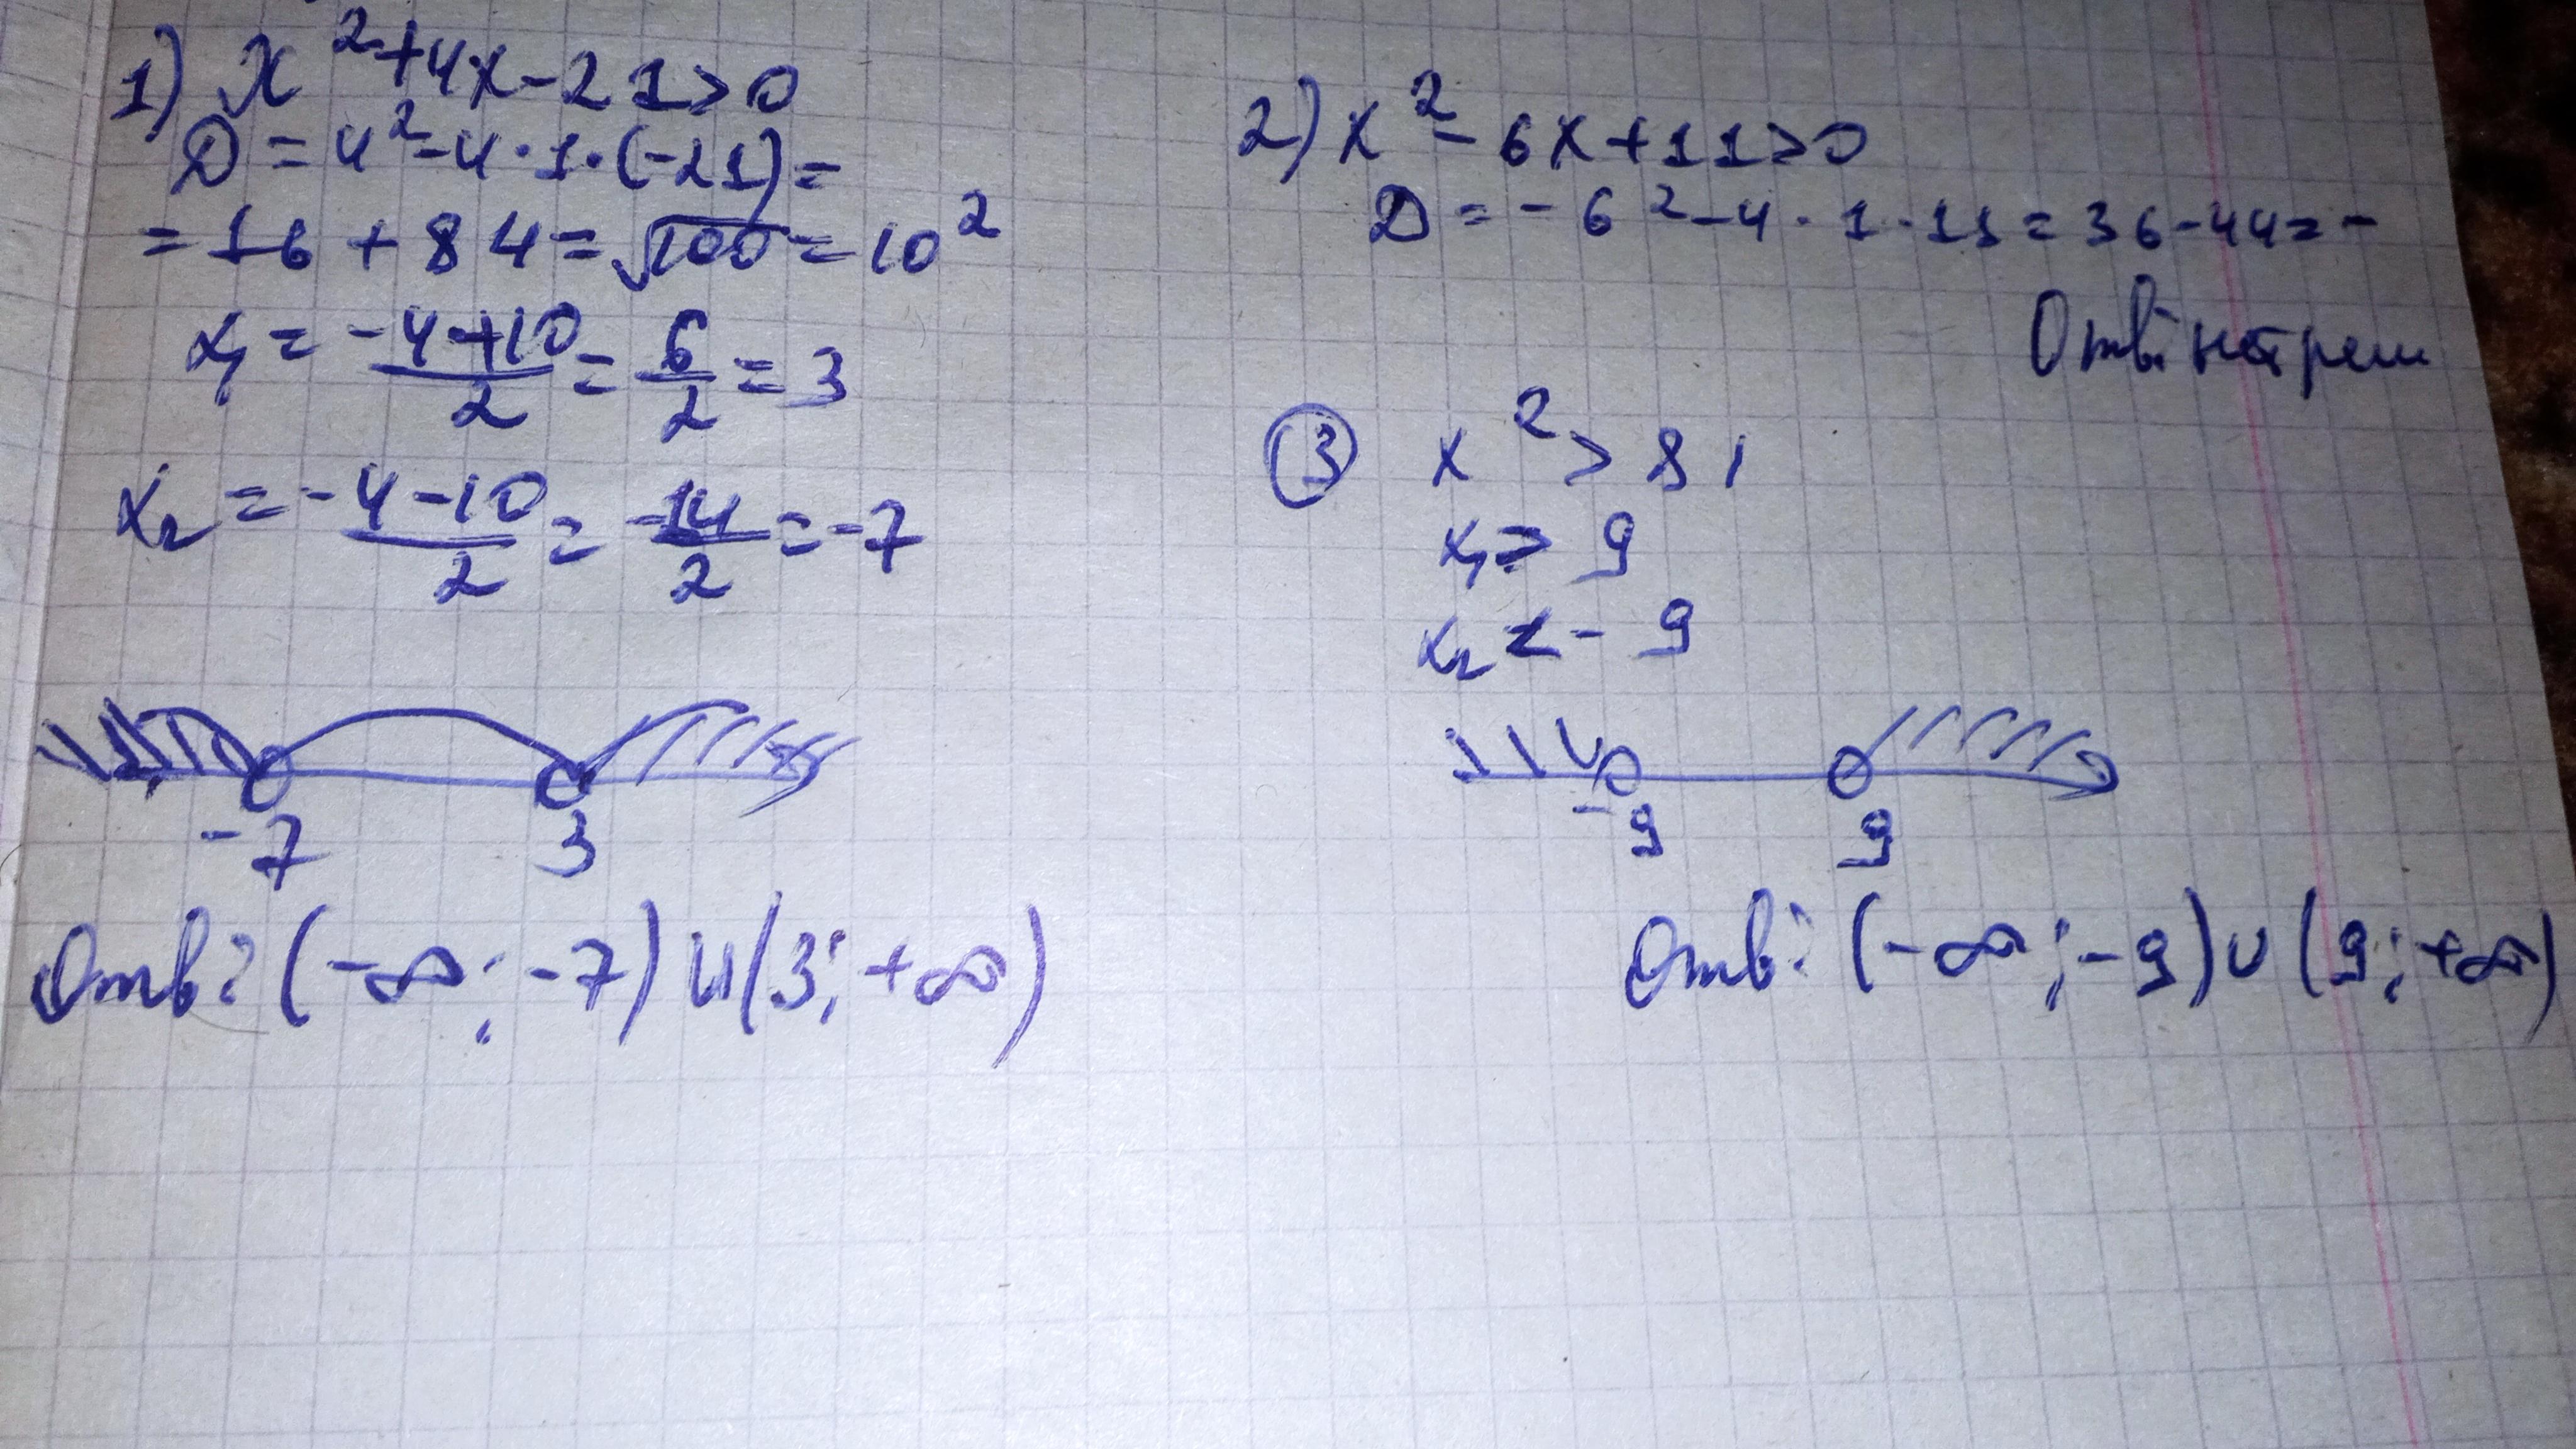 1) x²+4x-21>0
D=4²-4·1·(-21)=
=16+84=√100=10²
x₁=\frac{-4+10}{2}=\frac{6}{2}=3
x₂=\frac{-4-10}{2}=\frac{-14}{2}=-7
-7 3
Отв: (-∞;-7)∪(3;+∞)
2) x²-6x+11>0
D=-6²-4·1·11=36-44=-
Отв: нет реш
③ x²>81
x₁>9
x₂<-9
-9 9
Отв: (-∞;-9)∪(9;+∞)